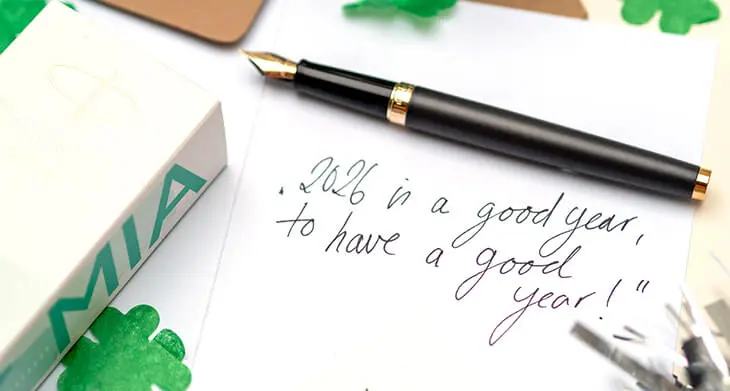 MIA
„2026 is a good year,
to have a good
year!"